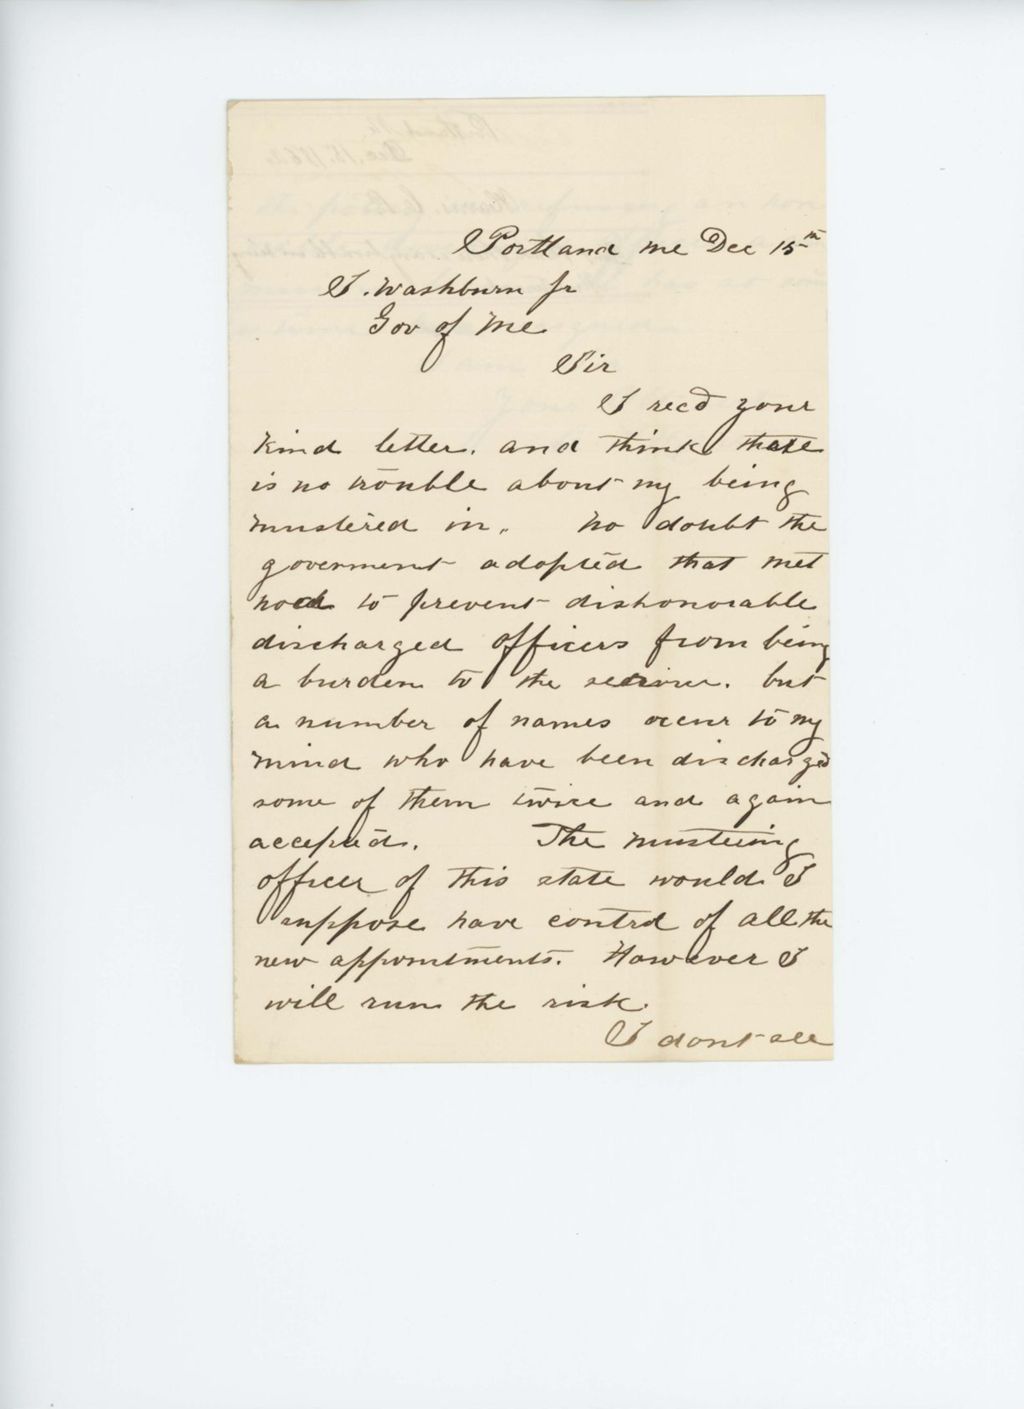 Portland Me Dec 15th
I. Washburn Jr
Gov of Me
Sir
I recd your
kind letter. and think there
is no trouble about my being
mustered in. No doubt the
goverment adopted that met
hod to prevent dishonorable
discharged officers from being
a burden to the service. but
a number of names occur to my
mind who have been discharged
some of them twice and again
accepted. The mustering
officer of this state would I
suppose have control of all the
new appointments. However I
will run the risk.
I dont see